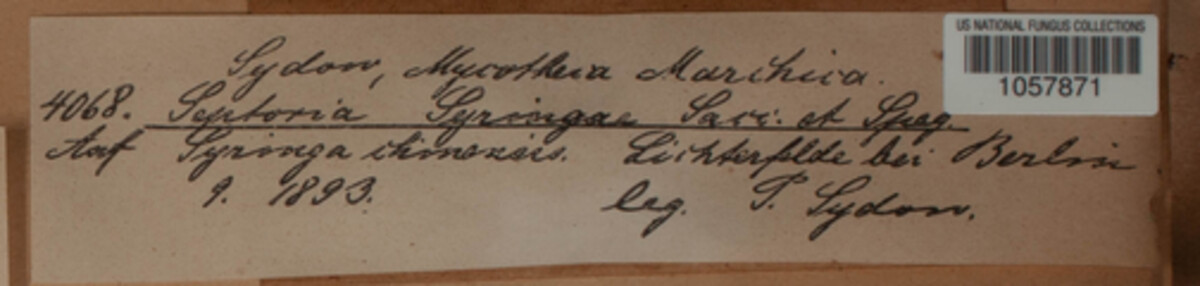 Sydow, Mycotheca Marchica.
4068. Septoria Syringae Sacc. et Speg.
Auf Syringa chinensis. Lichterfelde bei Berlin
9. 1893. leg. P. Sydow.
US NATIONAL FUNGUS COLLECTIONS
1057871